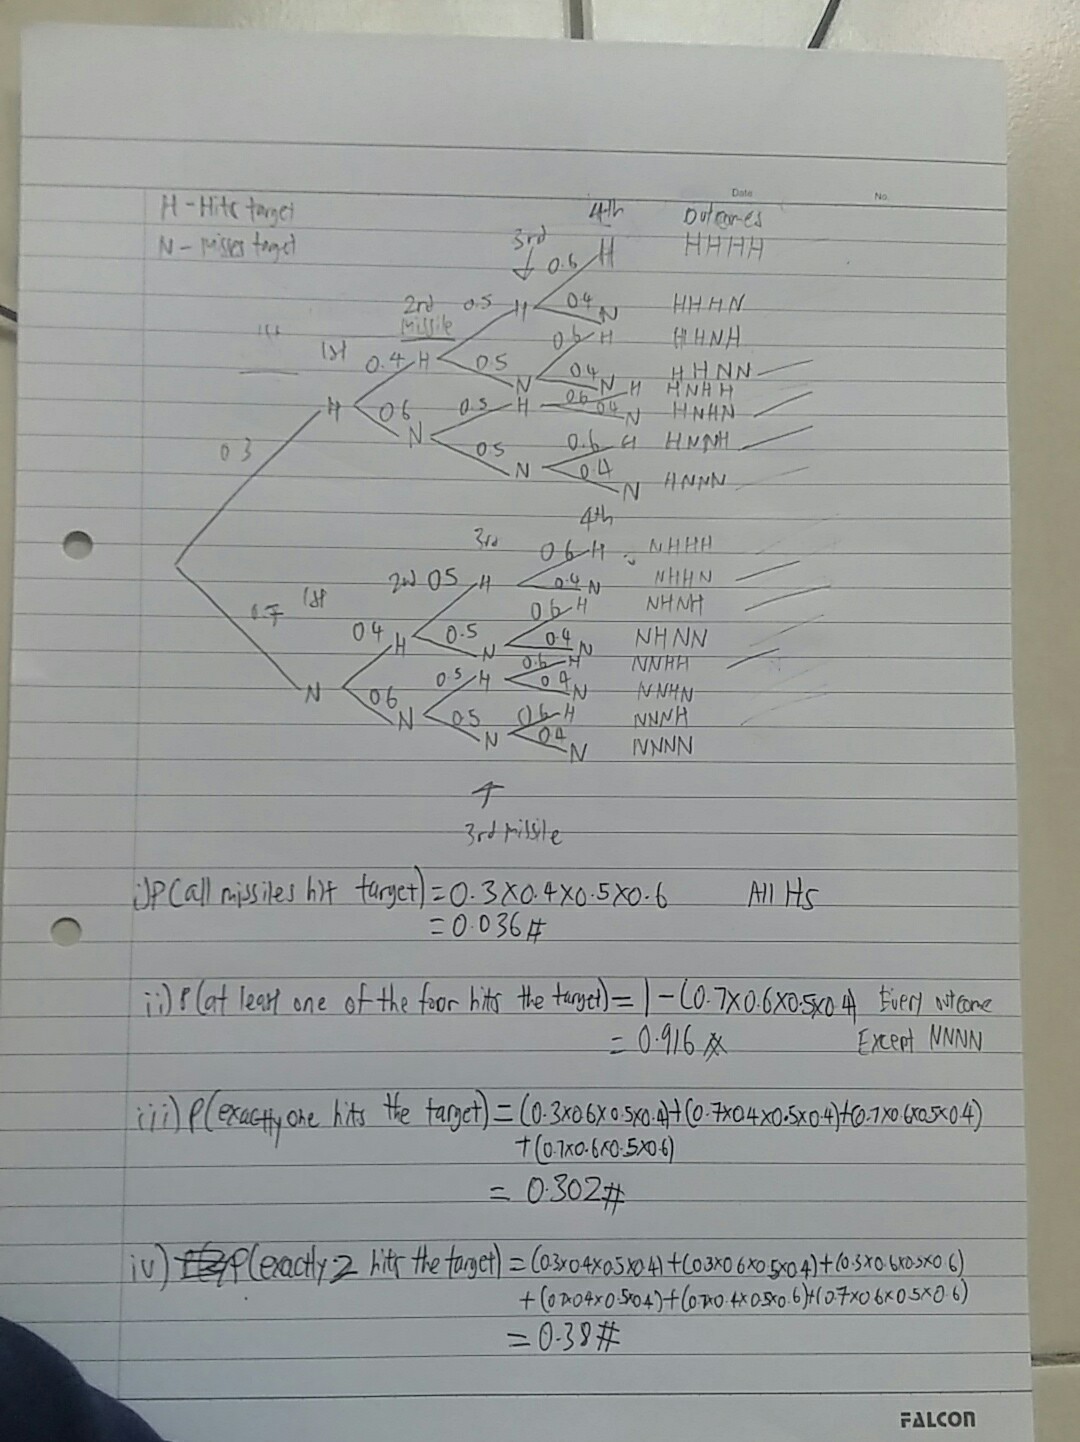 Date
No.
H - Hits target
N - misses target
4th
Outcomes
3rd
0.6
H
HHHH
2nd
missile
0.5
H
0.4
N
HHHN
0.6
H
HHNH
1st
0.4
H
0.5
N
0.4
N
HHNN
H
HNHH
H
0.6
N
0.5
H
0.6
0.4
N
HNHN
0.3
0.5
N
0.6
H
HNNH
0.4
N
HNNN
4th
3rd
0.6
H
NHHH
2nd
0.5
H
0.4
N
NHHN
0.7
1st
0.6
H
NHNH
0.4
H
0.5
N
0.4
N
NHNN
0.6
H
NNHH
N
0.6
N
0.5
H
0.4
N
NNHN
0.5
N
0.6
H
NNNH
0.4
N
NNNN
3rd missile
i) P(all missiles hit target) = 0.3×0.4×0.5×0.6 All Hs
= 0.036#
ii) P(at least one of the four hits the target) = 1-(0.7×0.6×0.5×0.4) Every outcome
= 0.916 Except NNNN
iii) P(exactly one hits the target) = (0.3×0.6×0.5×0.4)+(0.7×0.4×0.5×0.4)+(0.7×0.6×0.5×0.4)
+(0.7×0.6×0.5×0.6)
= 0.302#
iv) P(exactly 2 hits the target) = (0.3×0.4×0.5×0.4)+(0.3×0.6×0.5×0.4)+(0.3×0.6×0.5×0.6)
+(0.7×0.4×0.5×0.4)+(0.7×0.4×0.5×0.6)+(0.7×0.6×0.5×0.6)
= 0.38#
FALCON